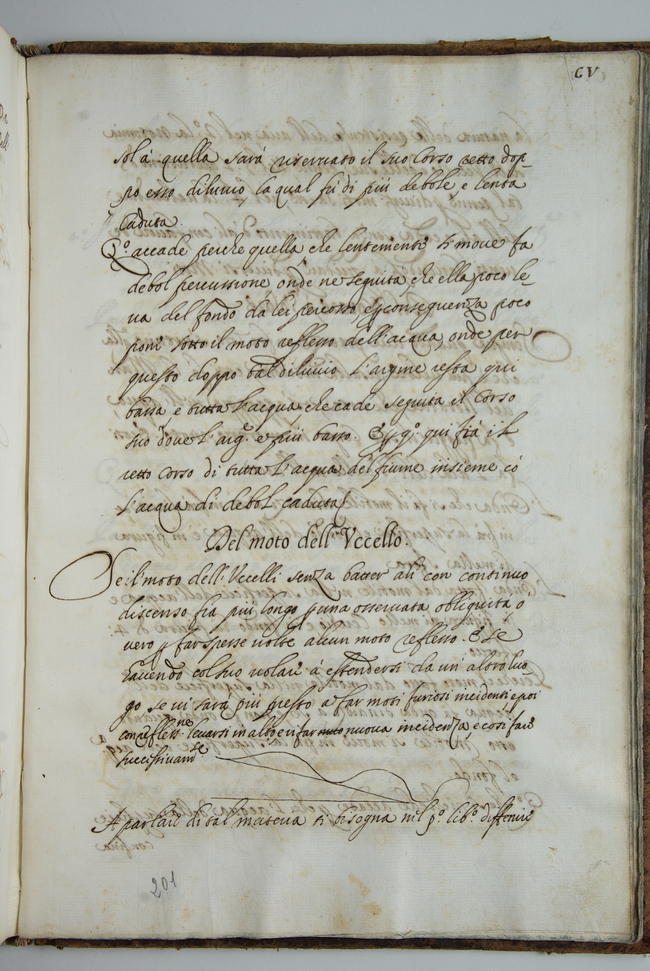 CV
sol à quella sarà riseruato il suo corso retto dop-
po esso diluuio, la qual fù di più debole, e lenta
caduta.
Q.o accade perche quella che lentemente si moue fa
debol percussione, onde ne seguita che ella poco le-
ua del fondo da lei percosso e conseguenza poco
pone sotto il moto reflesso dell'acqua, onde per
questo doppo tal diluuio l'argine resta qui
bassa, e tutta l'acqua, che cade seguita il corso
suo doue l'arg.e e più basso. E q.o qui fia il
retto corso di tutta l'acqua del fiume insieme cō
l'acqua di debol caduta.
Del moto dell'Vccello.
Se il moto dell'Vccelli senza batter ali con continuo
discenso fia più longo una osseruata obliquità, o
uero far spesse uolte alcun moto reflesso. E se
hauendo col suo uolare à estendersi da un'altro luo-
go se ui sarà più presto a far moti furiosi incidenti, e poi
con reflessne leuarsi in alto e rifar nuoua incidenza, e così fare
successiuamte
A parlare di tal materia ti bisogna nel p.o lib.o diffinire
201